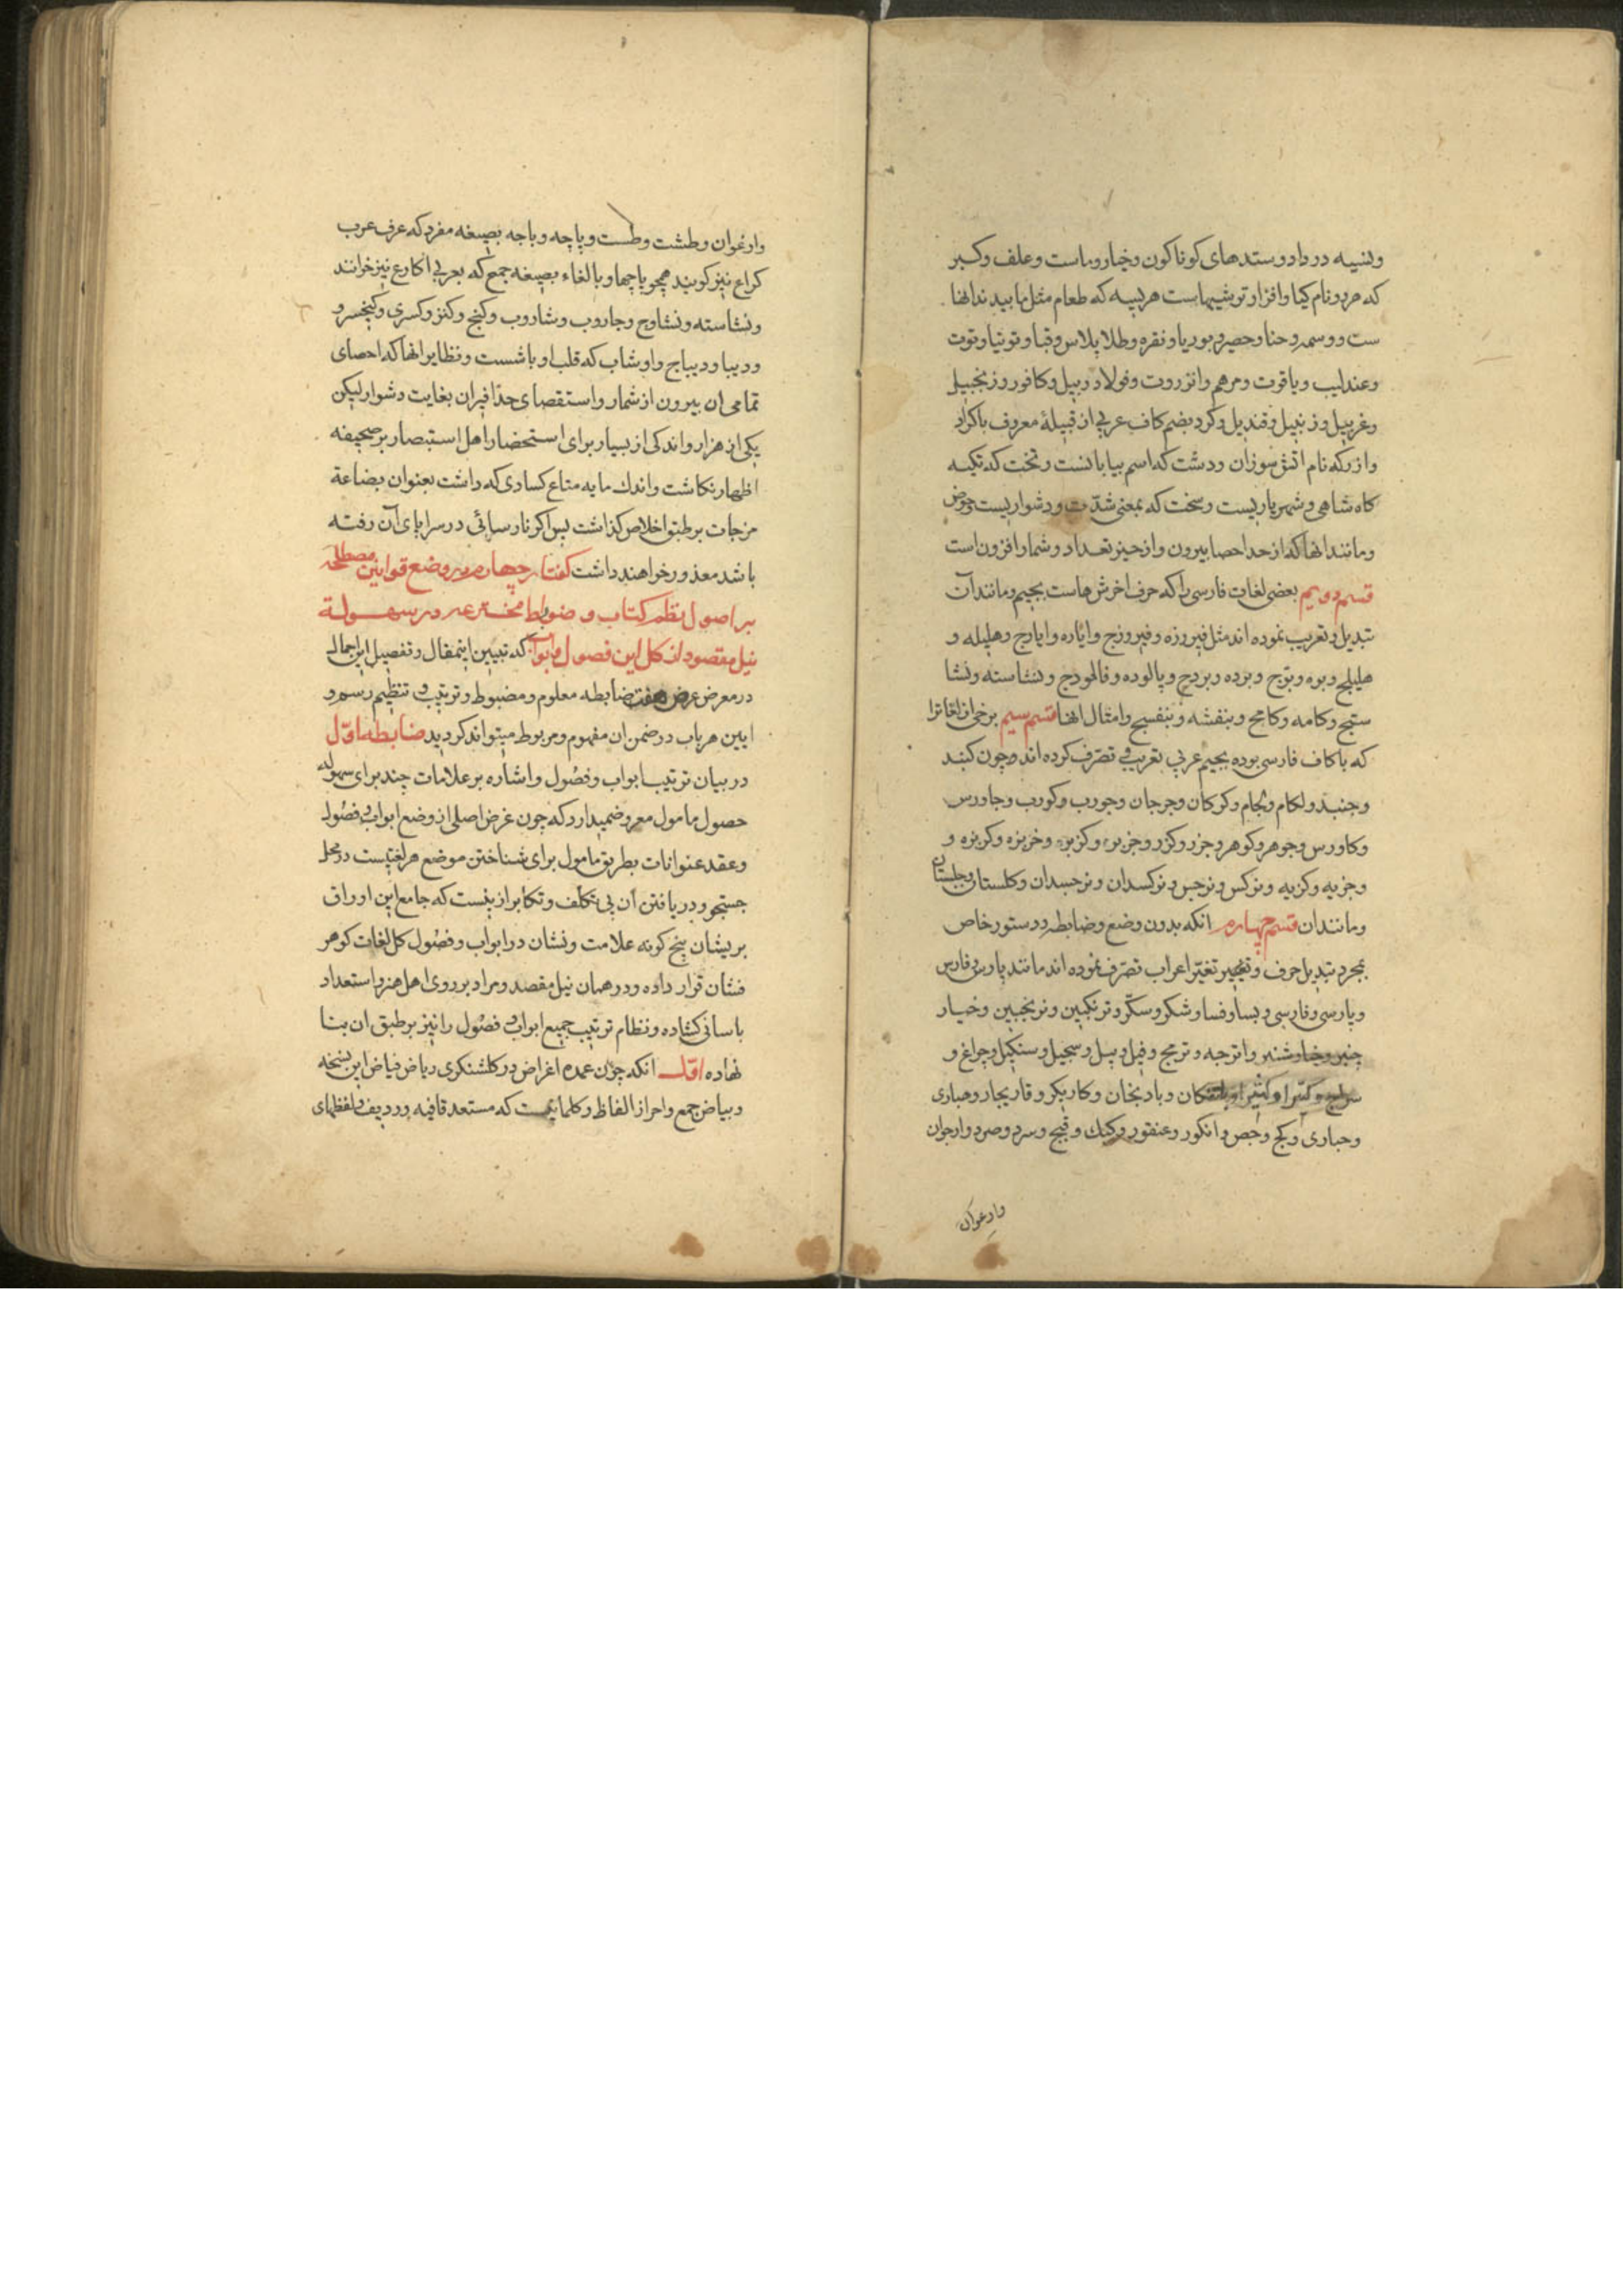 ونسیه در داد و ستدهای کوناکون وخیار وماست وعلف وکبر
که هر دو نام کیا وافزار ترشیهاست هریسه که طعام مثل
ست ووسمه وحنا وحصیر وبوریا ونقره وطلا پلاس وقبا وتوتیا وتوت
وعندلیب ویاقوت ومرهم وانزروت وفولاد وبیل وکافور وزنجبیل
وغربیل وزنبیل وقندیل وکرد بضم کاف عربی از قبیلهٔ معروف باکراد
وازر که نام اتش سوزان ودشت که اسم بیابانست وتخت که تکیه
کاه شاهی وشهریاریست وسخت که بمعنی شدّت ودشواریست وحوض
ومانند انها که از حد احصا بیرون واز حیز تعداد وشمار افزون است
قسم دویم بعضی لغات فارسی را که حرف اخرش هاست بجیم ومانند آن
تبدیل وتعریب نموده اند مثل فیروزه وفیروزج وایاره وایارج وهلیله و
هلیلج وبوه وبوج وبرده وبردج وپالوده وفالموذج ونشاسته ونشا
ستج وکامه وکامخ وبنفشه وبنفسج وامثال انها قسم سیم برخی از لغاترا
که باکاف فارسی بوده بجیم عربی بتعریب تصرّف کرده اند چون کنبد
وجنبد ولکام ولجام وکرکان وجرجان وجورب وکورب وجاورس
وکاورس وجوهر وکوهر وجزر وکزر وجزبره وکزبره وخربزه وکربزه و
وجزیه وکزیه ونرکس ونرجس ونرکسدان ونرجسدان وکلستان وجلستان
ومانند ان قسم چهارم انکه بدون وضع وضابطه ودستور خاص
بمجرد تبدیل حرف وتغییر اعراب تصرّف نموده اند مانند پارس وفارس
وپارسی وفارسی وبسا وفسا وشکر وسکّر وترنکبین وترنجبین وخیار
چنبر وخیارشنبر واترجه وترنج وفیل وپیل وسجیل وسنکیل وچراغ و
سراج وکتیرا وکثیرا وبادنکان وبادنجان وکاریکر وقاریجار وهباری
وحباری وکج وجص وانکور وعنقور وکبک وقبج وسرد وصرد وارجوان
وارغوان
وارغوان وطشت وطست وپاچه وباجه بصیغه مفرد که عرف عرب
کراع نیز کویند همچو پاچها وبالغاء بصیغه جمع که بعربی اکارع نیز خوانند
ونشاسته ونشاوج وجاروب وشاروب وکنج وکنز وکسری وکیخسرو
ودیبا ودیباج واوشاب که قلب اوباشست ونظایر انها که احصای
تمامی ان بیرون از شمار واستقصای حذافیران بغایت دشوار لیکن
یکی از هزار واندکی از بسیار برای استحضار اهل استبصار بر صحیفه
اظهار نکاشت واندك مایه متاع کسادی که داشت بعنوان بضاعة
مزجات بر طبق اخلاص کذاشت پس اکر نارسائی در سراپای آن رفته
باشد معذور خواهند داشت کفتار چهارم در وضع قوانین مصطلحه
بر اصول نظم کتاب و ضوابط مخترعه در سهولة
نیل مقصود از کل این فصول وابواب که تبیین اینمقال وتفصیل این اجمال
در معرض عرض هفت ضابطه معلوم ومضبوط وترتیب وتنظیم رسم و
ایین هر باب در ضمن ان مفهوم ومربوط میتواند کردید ضابطه اوّل
در بیان ترتیب ابواب وفصُول واشاره بر علامات چند برای سهوله
حصول مامول معروضمیدارد که چون غرض اصلی از وضع ابواب وفصُول
وعقد عنوانات بطریق مامول برای شناختن موضع هر لغتیست در محل
جستجو ودریافتن آن بی تکلف وتکابر ازینست که جامع این اوراق
پریشان پنج کونه علامت ونشان در ابواب وفصُول کل لغات کوهر
فشان قرار داده ودر همان نیل مقصد ومراد بر روی اهل هنر واستعداد
باسانی کشاده ونظام ترتیب جمیع ابواب وفصُول را نیز بر طبق ان بنا
نهاده اوّل انکه چون عمده اغراض در کلشنکری ریاض فیاض این نسخه
وبیاض جمع واحراز الفاظ وکلماتیست که مستعد قافیه وردیف ولفظهای